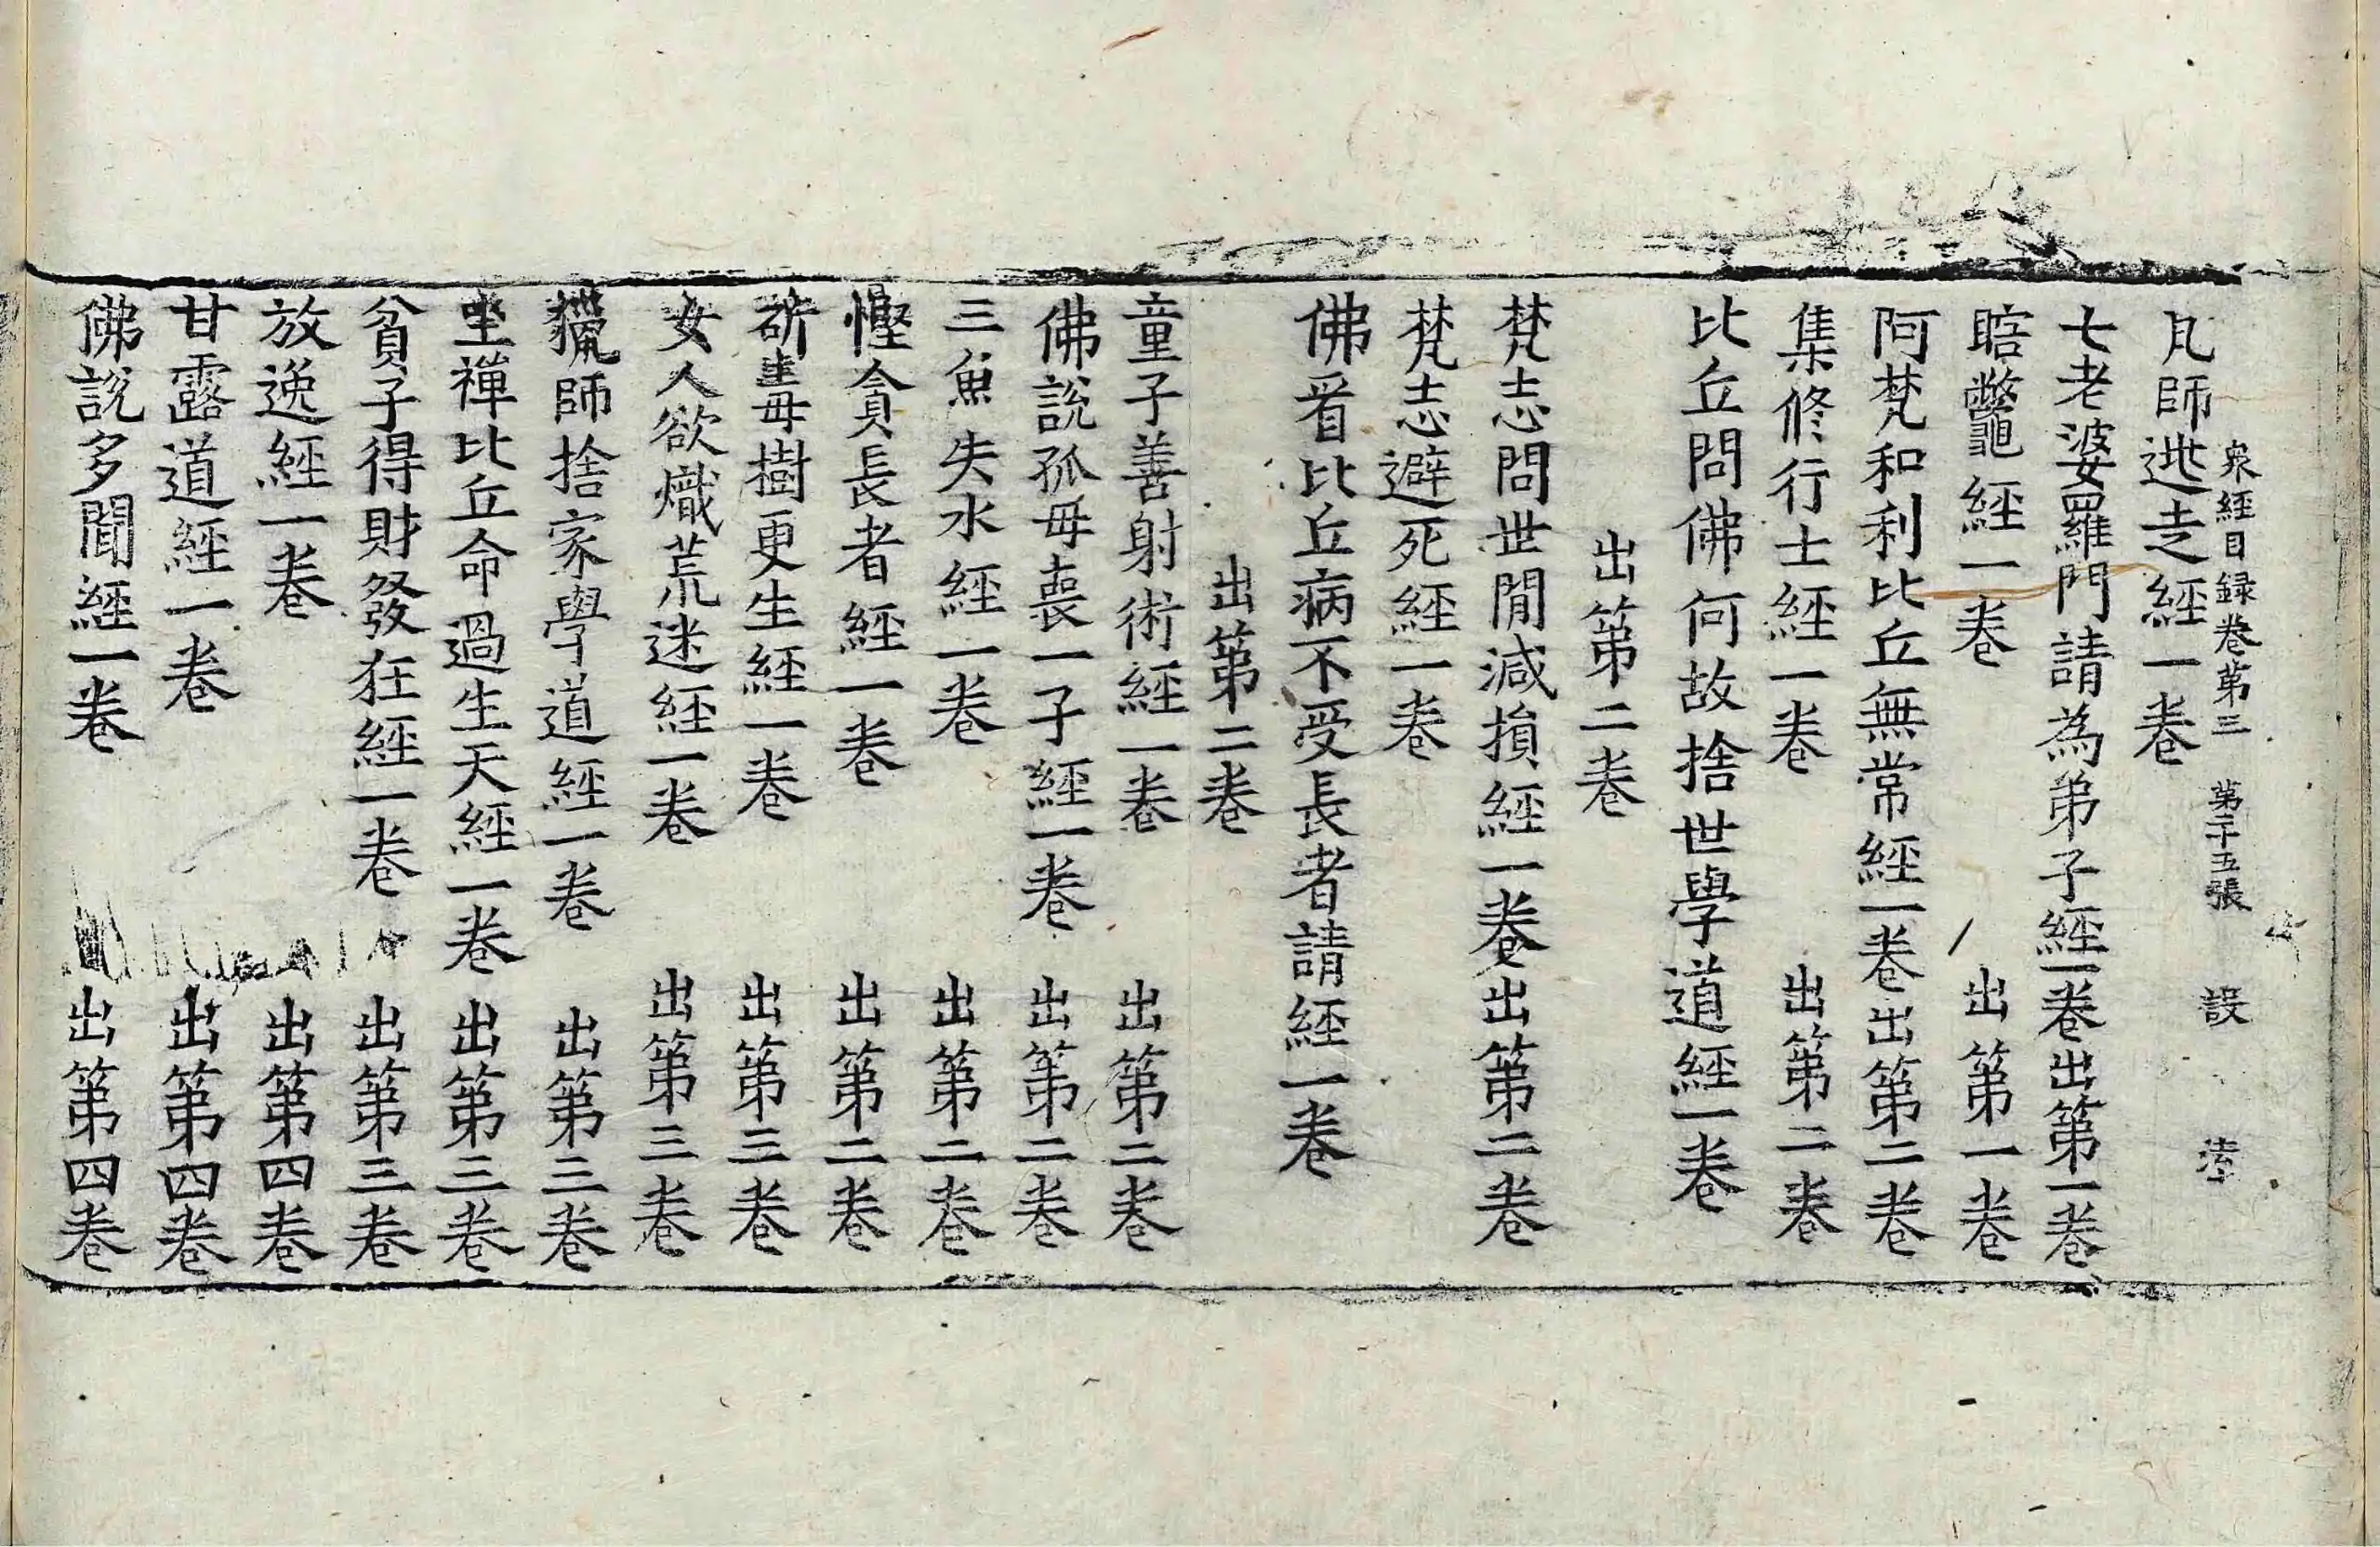 衆經目録卷第三 第二十五張 設
凡師迯走經一卷
七老婆羅門請為弟子經一卷出第一卷
瞎鼈經一卷 出第一卷
阿梵和利比丘無常經一卷出第二卷
集修行士經一卷 出第二卷
比丘問佛何故捨世學道經一卷
出第二卷
梵志問世閒減損經一卷出第二卷
梵志避死經一卷
佛看比丘病不受長者請經一卷
出第二卷
童子善射術經一卷 出第二卷
佛說孤母喪一子經一卷 出第二卷
三魚失水經一卷 出第二卷
慳貪長者經一卷 出第二卷
斫毒樹更生經一卷 出第三卷
女人欲熾荒迷經一卷 出第三卷
獵師捨家學道經一卷 出第三卷
坐禪比丘命過生天經一卷 出第三卷
貧子得財發狂經一卷 出第三卷
放逸經一卷 出第四卷
甘露道經一卷 出第四卷
佛說多聞經一卷 出第四卷